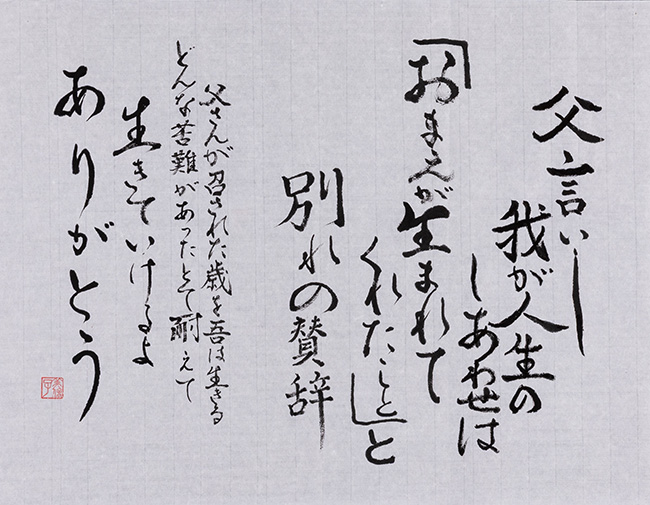 父言いし
我が人生の
しあわせは
「おまえが生まれて
くれたこと」と
別れの賛辞
父さんが召された歳を吾は生きる
どんな苦難があったとて耐えて
生きていけるよ
ありがとう